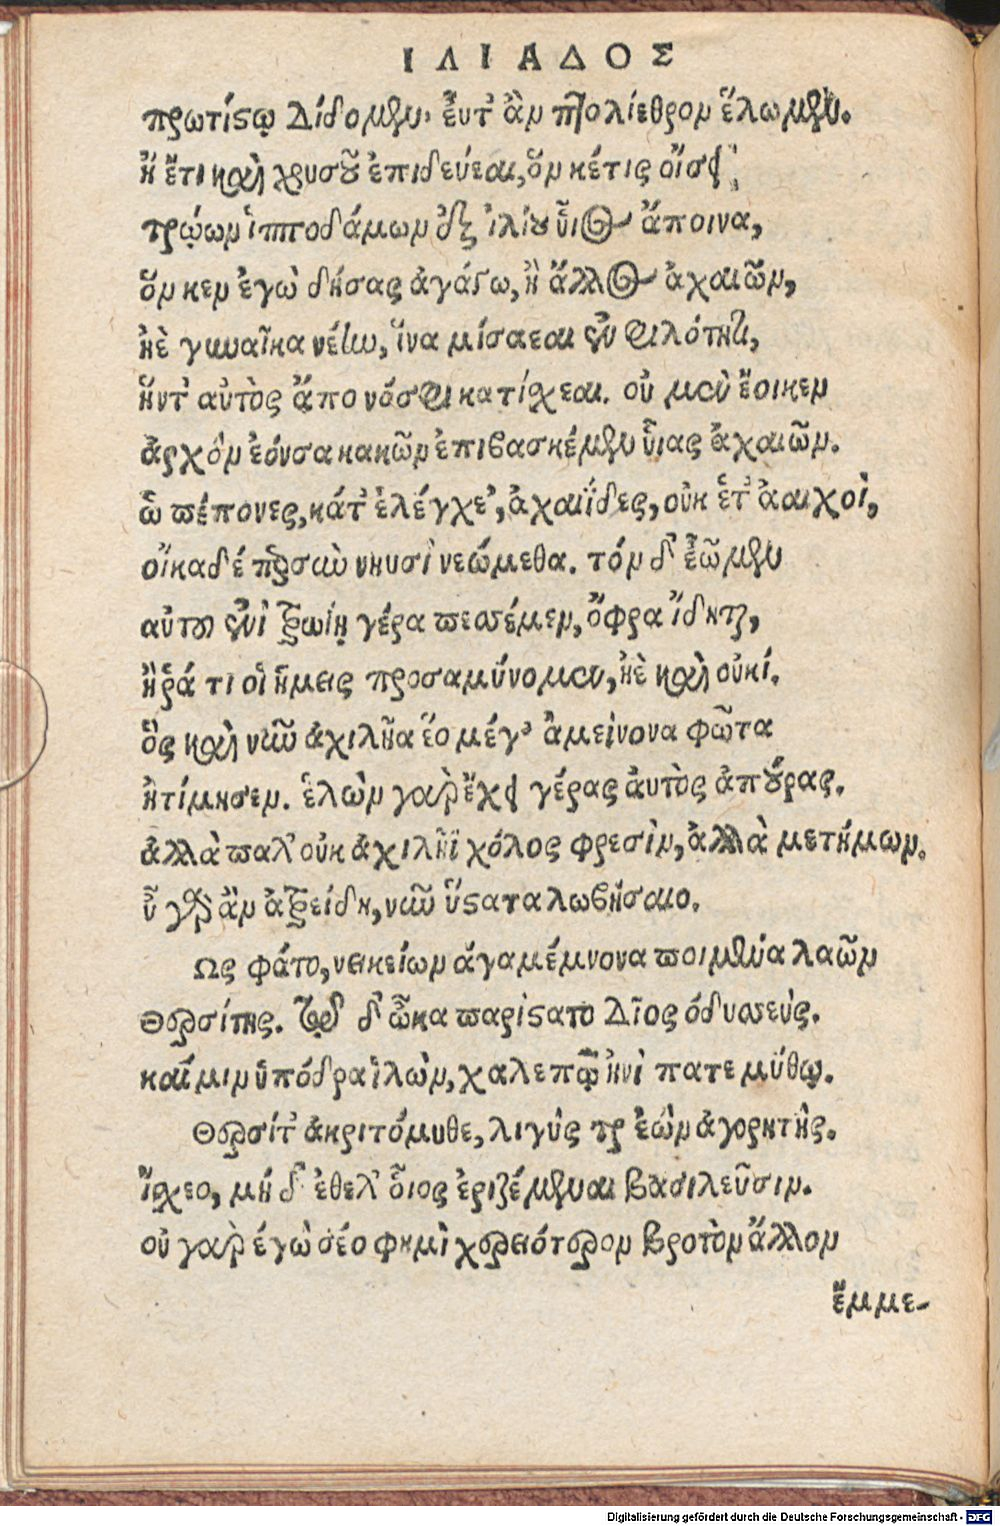 ΙΛΙΑΔΟΣ
πρωτίστῳ δίδομεν· εὖτ' ἂν πτολίεθρον ἕλωμεν.
ἢ ἔτι καὶ χρυσοῦ ἐπιδεύεαι, ὅν κέτις οἴσει;
τρώων ἱπποδάμων ἐξ ἰλίου υἷος ἄποινα,
ὅν κεν ἐγὼ δήσας ἀγάγω, ἢ ἄλλος ἀχαιῶν,
ἠὲ γυναῖκα νέην, ἵνα μίσγεαι ἐν φιλότητι,
ἥντ' αὐτὸς ἄπο νόσφι κατίσχεαι. οὐ μὲν ἔοικεν
ἀρχὸν ἐόντα κακῶν ἐπιβασκέμεν υἷας ἀχαιῶν.
ὦ πέπονες, κάτ' ἐλέγχε', ἀχαιΐδες, οὐκ ἔτ' ἀχαιοὶ,
οἴκαδέ περ σὺν νηυσὶ νεώμεθα. τόν δ' ἐῶμεν
αὐτοῦ ἐνὶ τροίῃ γέρα πεσσέμεν, ὄφρα ἴδηται,
ἤ ῥά τι οἱ ἡμεῖς προσαμύνομεν, ἠὲ καὶ οὐκί.
ὃς καὶ νῦν ἀχιλῆα ἕο μέγ' ἀμείνονα φῶτα
ἠτίμησεν. ἑλὼν γὰρ ἔχει γέρας ἀυτὸς ἀπούρας.
ἀλλὰ μαλ' οὐκ ἀχιλῆϊ χόλος φρεσὶν, ἀλλὰ μετήμων.
ἦ γὰρ ἂν ἀτρείδη, νῦν ὕστατα λωβήσαιο.
Ως φάτο, νεικείων ἀγαμέμνονα ποιμένα λαῶν
Θερσίτης. τῷ δ' ὦκα παρίστατο δῖος ὀδυσσεύς.
καί μιν ὑπόδρα ἰδὼν, χαλεπῷ ἠνίπαπε μύθῳ.
Θερσίτ' ἀκριτόμυθε, λιγύς περ ἐὼν ἀγορητής.
ἴσχεο, μήδ' ἔθελ' οἶος ἐριζέμεναι βασιλεῦσιν.
οὐ γὰρ ἐγὼ σέο φημὶ χερειότερον βροτὸν ἄλλον
ἔμμε-
Digitalisierung gefördert durch die Deutsche Forschungsgemeinschaft - DFG